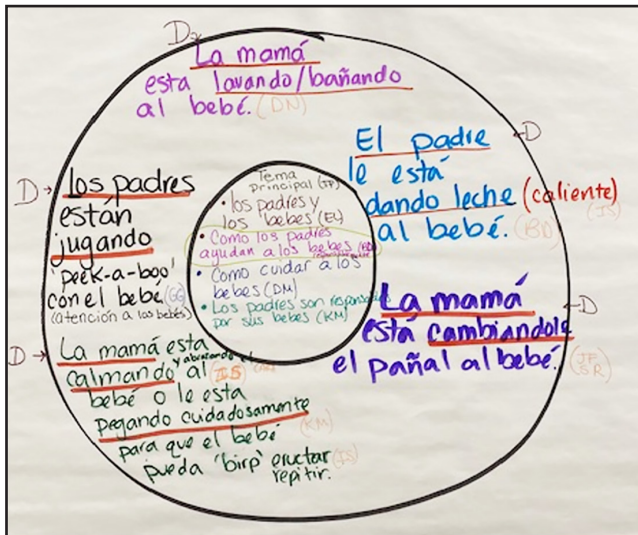 D
La mamá
esta lavando/bañando
al bebé. (DN)
D
El padre
le está
dando leche (caliente)
(JS)
al bebé. (BD)
D
Los padres
están
jugando
'peek-a-boo'
con el bebé (GG)
(atención a los bebés)
Tema
Principal (JF)
• los padres y
los bebes (EL)
• Como los padres
ayudan a los bebes
• Como cuidar a los
bebes (DM)
• Los padres son
por sus bebes (KM)
D
La mamá
está cambiandole
el pañal al bebé.
(JF
SR)
D
La mamá esta
calmando y abrazando al
bebé o le esta
pegando cuidadosamente
(KM)
para que el bebé
pueda 'birp' eructar
repitir.